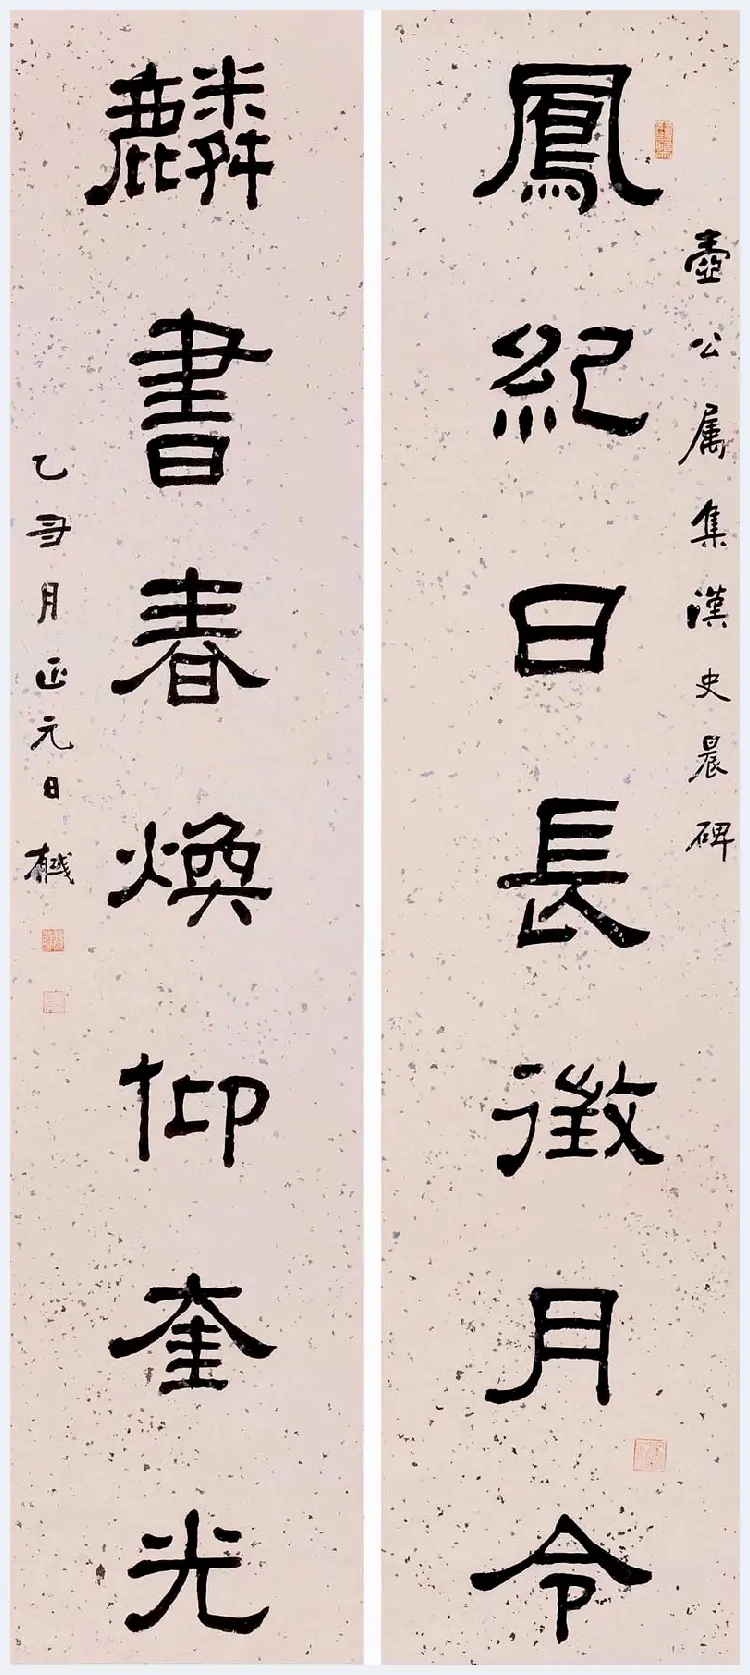 鳳紀日長徵月令
壺公属集漢史晨碑
麟書春煥仰奎光
乙丑月正元日樾